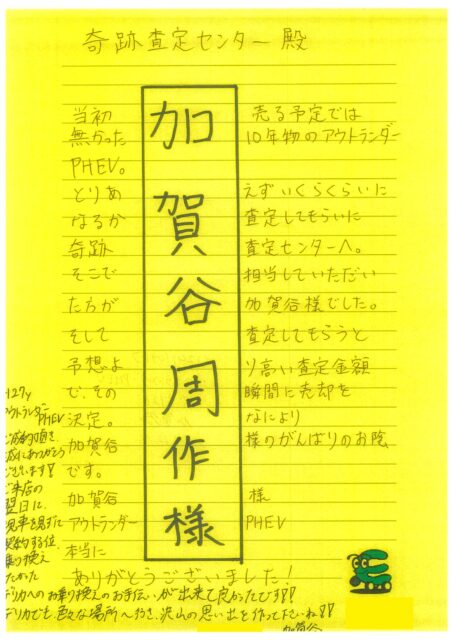 奇跡査定センター 殿
加賀谷周作様
当初 売る予定では
無かった 10年物のアウトランダー
PHEV。
とりあ えずいくらくらいに
なるか 査定してもらいに
奇跡 査定センターへ。
そこで 担当していただい
た方が 加賀谷様でした。
そして 査定してもらうと
予想よ り高い査定金額
で、その 瞬間に売却を
決定。 なにより
加賀谷 様のがんばりのお陰
です。
加賀谷 様
アウトランダー PHEV
本当に
ありがとうございました!
H27y
アウトランダー
PHEV
ご成約頂き、
誠にありがとう
ございます!!
ご来店の
翌日に、
現車を見ずに
契約する位
乗り換え
たかった
デリカへのお乗り換えのお手伝いが出来て良かったです!!
デリカでも色々な場所へ行き、沢山の思い出を作って下さいね!!
加賀谷